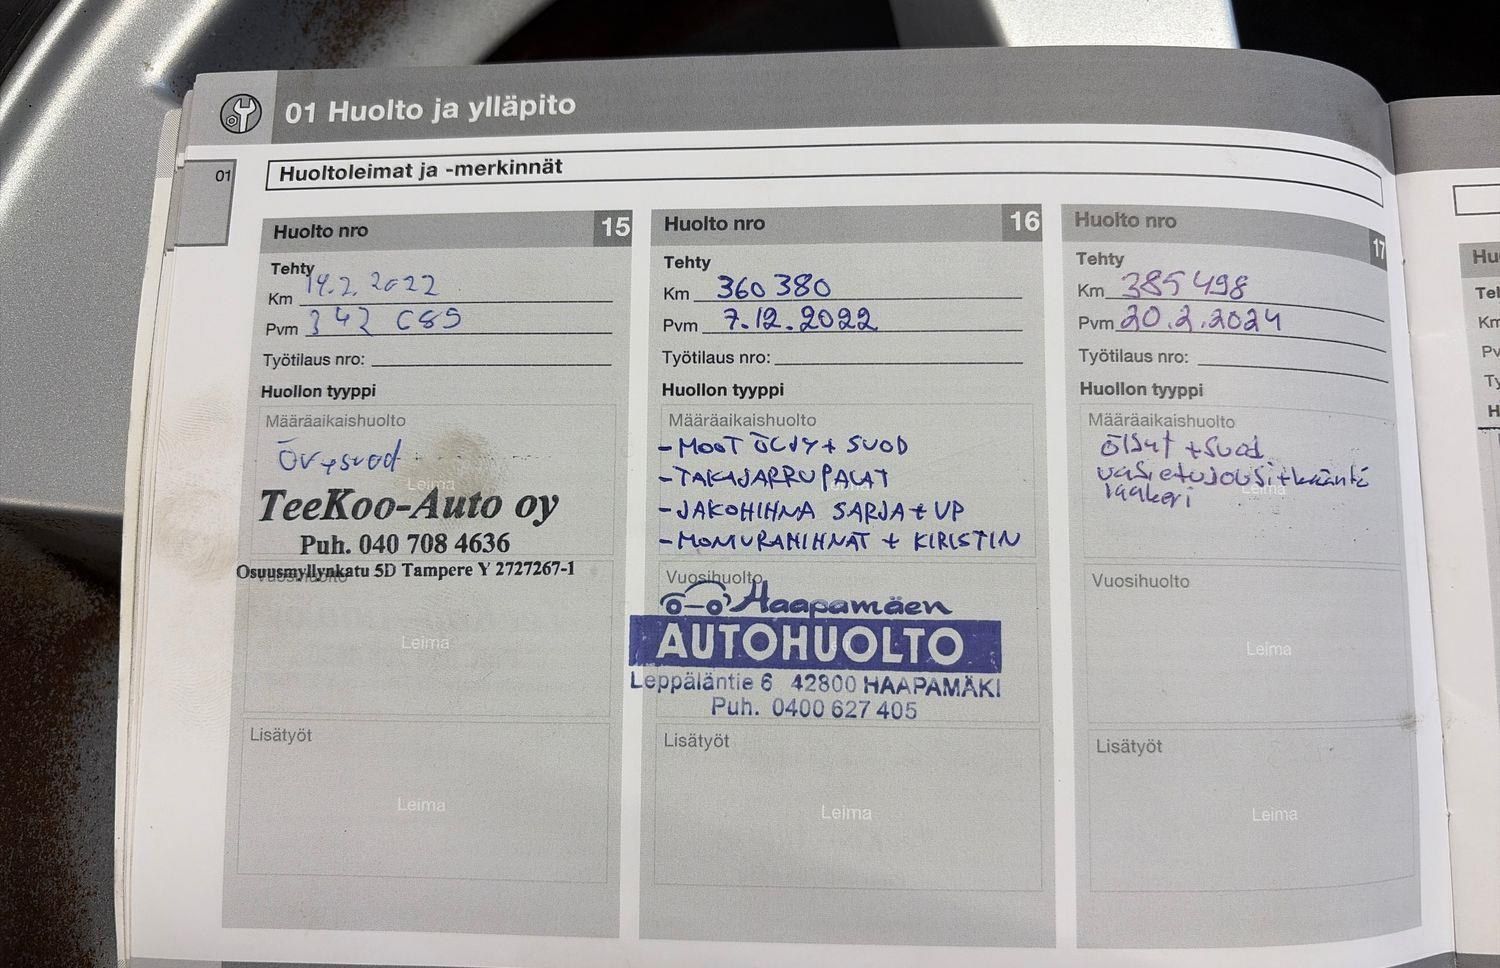 01 Huolto ja ylläpito
01
Huoltoleimat ja -merkinnät
Huolto nro 15
Tehty
Km 14.2.2022
Pvm 342 089
Työtilaus nro:
Huollon tyyppi
Määräaikaishuolto
Öv+suod
Leima
TeeKoo-Auto oy
Puh. 040 708 4636
Osuusmyllynkatu 5D Tampere Y 2727267-1
Vuosihuolto
Leima
Lisätyöt
Leima
Huolto nro 16
Tehty
Km 360 380
Pvm 7.12.2022
Työtilaus nro:
Huollon tyyppi
Määräaikaishuolto
- MOOT ÖLJY + SUOD
- TAKAJARRUPALAT
- JAKOHIHNA SARJA + VP
- MONIURAHIHNAT + KIRISTIN
Vuosihuolto
Haapamäen
AUTOHUOLTO
Leppäläntie 6 42800 HAAPAMÄKI
Puh. 0400 627 405
Lisätyöt
Leima
Huolto nro 17
Tehty
Km 385 498
Pvm 20.2.2024
Työtilaus nro:
Huollon tyyppi
Määräaikaishuolto
öljyt + suod
vasietujousi+kääntö
laakeri
Leima
Vuosihuolto
Leima
Lisätyöt
Leima
Hu
Tel
Km
Pv
Ty
H